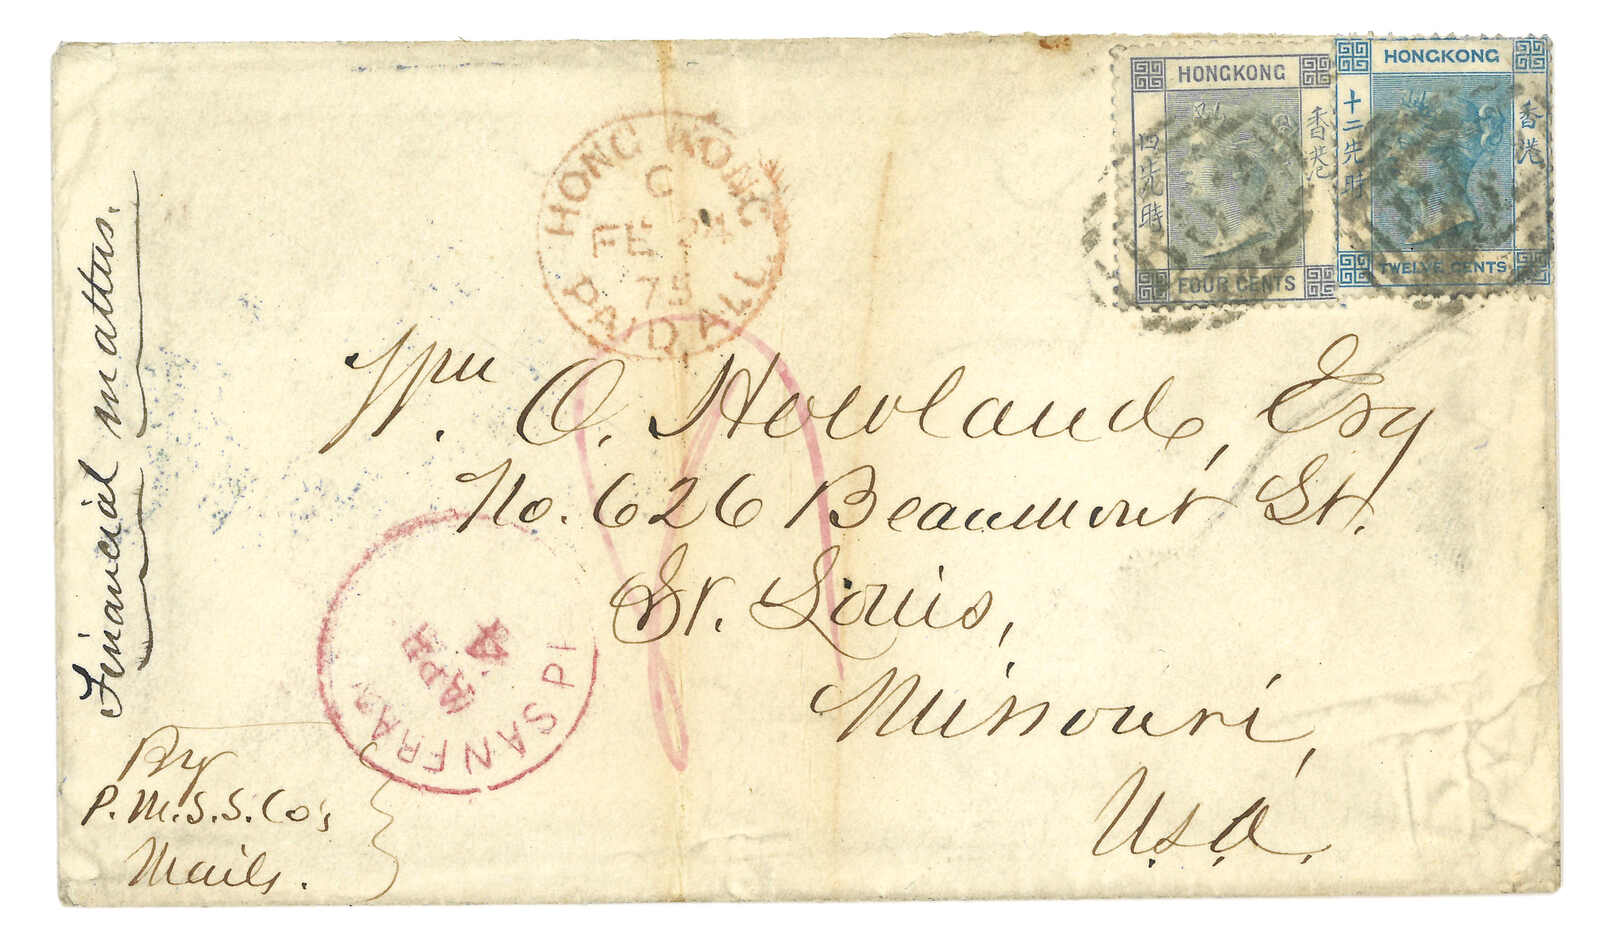 HONGKONG
四先時
香港
FOUR CENTS
HONGKONG
十二先時
香港
TWELVE CENTS
HONG KONG
C
FE 24
75
PAID ALL
Wm. O. Howland, Esq
No. 626 Beaumont St.
St. Louis,
Missouri,
U.S.A.
Financial matters.
SAN FRAN
APR
4
By
P.M.S.S.Co's
Mails.